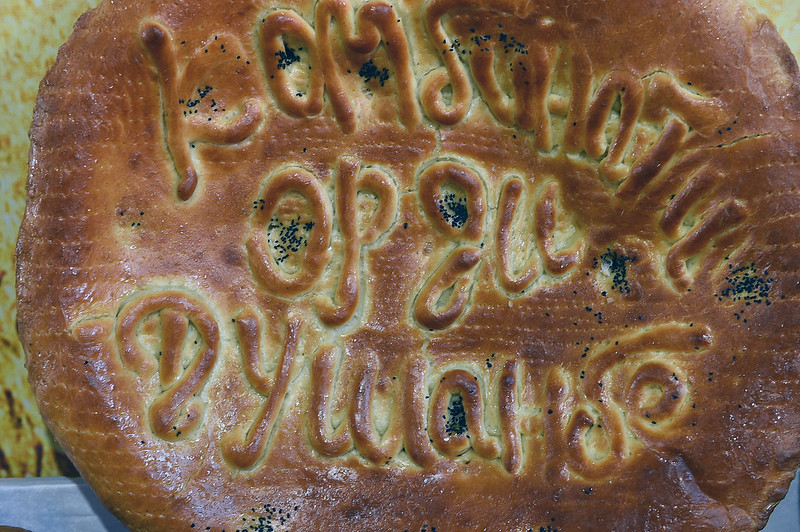 Комбинати
орди
Душанбе